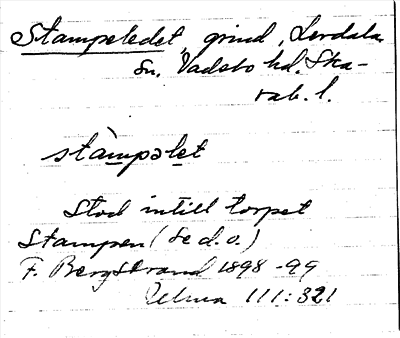 Stampeledet, grind, Lerdala
sn. Vadsbo hd. Ska-
rab. l.
stàmpəlet
Stod intill torpet
Stampen (se d. o.)
F. Bergstrand 1898-99
Ulma 111:321